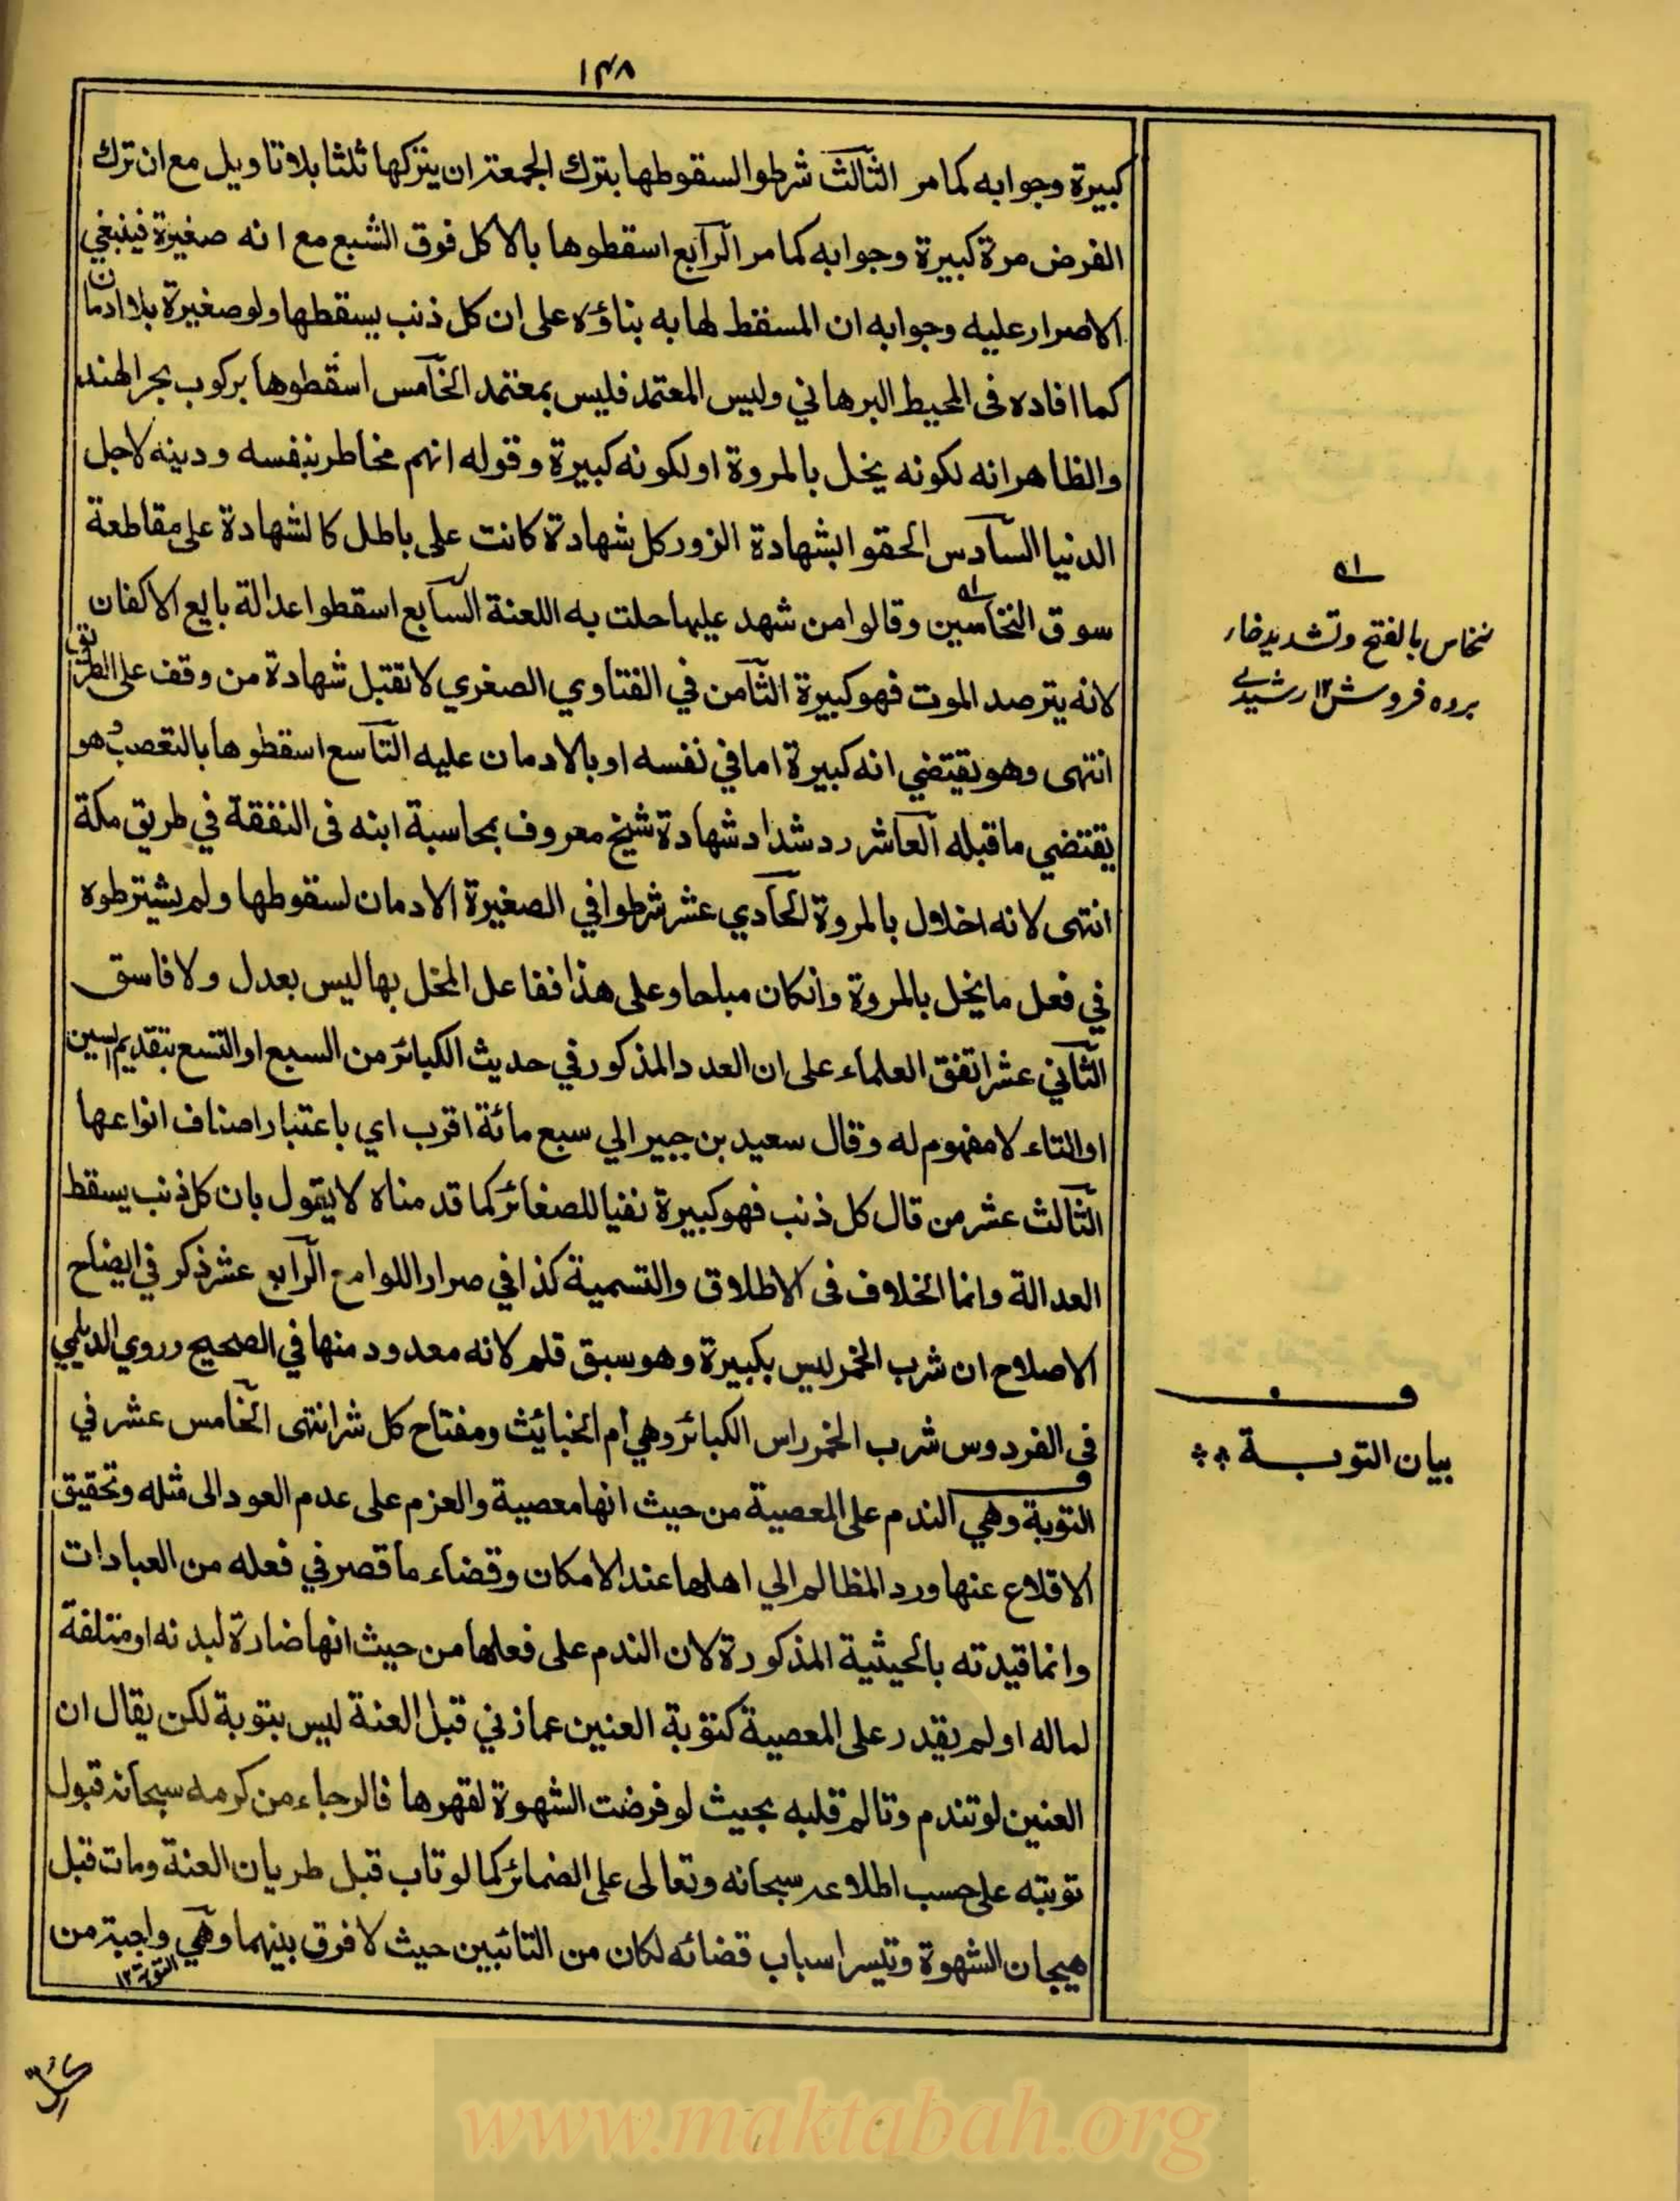 ١٣٨
كبيرة وجوابه كما مر الثالث شرطوا لسقوطها بترك الجمعة ان يتركها ثلثا بلا تاويل مع ان ترك
الفرض مرة كبيرة وجوابه كما مر الرابع اسقطوها بالاكل فوق الشبع مع انه صغيرة فينبغي
الاصرار عليه وجوابه ان المسقط لها به بناؤه على ان كل ذنب يسقطها ولو صغيرة بلا ادمان
كما افاده فى المحيط البرهاني وليس المعتمد فليس بمعتمد الخامس اسقطوها بركوب بحر الهند
والظاهر انه لكونه يخل بالمروة او لكونه كبيرة وقوله انهم مخاطر بنفسه ودينه لاجل
الدنيا السادس الحقوا بشهادة الزور كل شهادة كانت على باطل كالشهادة على مقاطعة
سوق النخاسين وقالوا من شهد عليها حلت به اللعنة السابع اسقطوا عدالة بايع الاكفان
لانه يترصد الموت فهو كبيرة الثامن في الفتاوي الصغري لا تقبل شهادة من وقف على الطريق
انتهى وهو يقتضي انه كبيرة اما في نفسه او بالادمان عليه التاسع اسقطوها بالتعصب وهو
يقتضي ما قبله العاشر رد شداد شهادة شيخ معروف بمحاسبة ابنه فى النفقة في طريق مكة
انتهى لانه اخلال بالمروة الحادي عشر شرطوا في الصغيرة الادمان لسقوطها ولم يشترطوه
في فعل ما يخل بالمروة وانكان مباحا وعلى هذا ففاعل المخل بها ليس بعدل ولا فاسق
الثاني عشر اتفق العلماء على ان العدد المذكور في حديث الكبائر من السبع او التسع بتقديم السين
او التاء لا مفهوم له وقال سعيد بن جبير الي سبع مائة اقرب اي باعتبار اصناف انواعها
الثالث عشر من قال كل ذنب فهو كبيرة نفيا للصغائر كما قدمناه لا يقول بان كل ذنب يسقط
العدالة وانما الخلاف فى الاطلاق والتسمية كذا في صرار اللوامع الرابع عشر ذكر في ايضاح
الاصلاح ان شرب الخمر ليس بكبيرة وهو سبق قلم لانه معدود منها في الصحيح وروي الديلمي
فى الفردوس شرب الخمر راس الكبائر وهي ام الخبايث ومفتاح كل شر انتهى الخامس عشر في
التوبة وهي الندم على المعصية من حيث انها معصية والعزم على عدم العود الى مثله وتحقيق
الاقلاع عنها ورد المظالم الي اهلها عند الامكان وقضاء ما قصر في فعله من العبادات
وانما قيدته بالحيثية المذكورة لان الندم على فعلها من حيث انها ضارة لبدنه او متلفة
لماله او لم يقدر على المعصية كتوبة العنين عما زني قبل العنة ليس بتوبة لكن يقال ان
العنين لو تندم وتالم قلبه بحيث لو فرضت الشهوة لقهرها فالرجاء من كرمه سبحانه قبول
توبته على حسب اطلاعه سبحانه وتعالى على الضمائر كما لو تاب قبل طريان العنة ومات قبل
هيجان الشهوة وتيسر اسباب قضائه لكان من التائبين حيث لا فرق بينهما وهي واجبة من
التوبة ١٢
نخاس بالفتح وتشديد خار
برده فروش ١٢ رشيدي
ف
بيان التوبة
www.maktabah.org